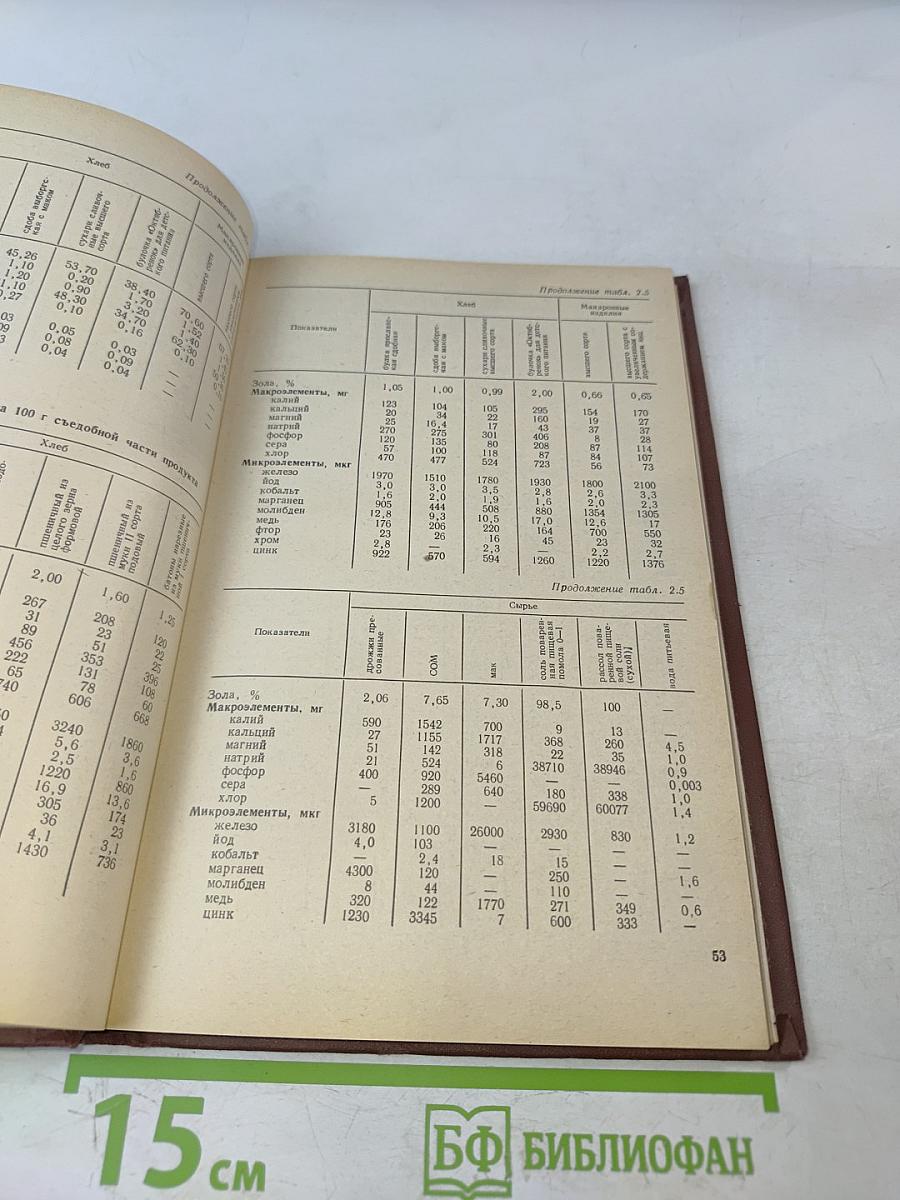 Хлеб
Продолжение
сдоба выборгская с маком
сухари сливочные высшего сорта
булочка «Октябренок» для детского питания
высшего сорта
45,26 53,70 38,40 70,60
1,10 0,20 1,70 1,52
1,20 0,90 3,20 1,40
1,10 48,30 34,70 62,30
0,27 0,10 0,16 0,10
03 0,05 0,03 —
09 0,08 0,09 —
3 0,04 0,04 —
а 100 г съедобной части продукта
Хлеб
пшеничный из целого зерна формовой
пшеничный из муки II сорта подовый
батоны нарезные из муки пшеничной I сорта
2,00 1,60 1,25
267 208 120
31 23 22
89 51 25
456 353 396
222 131 108
65 78 60
740 606 668
3240 1860
5,6 3,6
2,5 1,6
1220 860
16,9 13,6
305 174
36 23
4,1 3,1
1430 736
Продолжение табл. 2.5
Показатели
Хлеб
Макаронные изделия
булка ярославская сдобная
сдоба выборгская с маком
сухари сливочные высшего сорта
булочка «Октябренок» для детского питания
высшего сорта
высшего сорта с увеличенным содержанием яиц
Зола, % 1,05 1,00 0,99 2,00 0,66 0,65
Макроэлементы, мг
калий 123 104 105 295 154 170
кальций 20 34 22 160 19 27
магний 25 16,4 17 43 37 37
натрий 270 275 301 406 8 28
фосфор 120 135 80 208 87 114
сера 57 100 118 87 84 107
хлор 470 477 524 723 56 73
Микроэлементы, мкг
железо 1970 1510 1780 1930 1800 2100
йод 3,0 3,0 3,5 2,8 2,6 3,3
кобальт 1,6 2,0 1,9 1,6 2,0 2,3
марганец 905 444 508 880 1354 1305
молибден 12,8 9,3 10,5 17,0 12,6 17
медь 176 206 220 164 700 550
фтор 23 26 16 45 23 32
хром 2,8 — 2,3 — 2,2 2,7
цинк 922 570 594 1260 1220 1376
Продолжение табл. 2.5
Показатели
Сырье
дрожжи прессованные
СОМ
мак
соль поваренная пищевая помола 0—1
рассол поваренной пищевой соли (сухой)
вода питьевая
Зола, % 2,06 7,65 7,30 98,5 100 —
Макроэлементы, мг
калий 590 1542 700 9 13 —
кальций 27 1155 1717 368 260 4,5
магний 51 142 318 22 35 1,0
натрий 21 524 6 38710 38946 0,9
фосфор 400 920 5460 — — 0,003
сера — 289 640 180 338 1,0
хлор 5 1200 — 59690 60077 1,4
Микроэлементы, мкг
железо 3180 1100 26000 2930 830 1,2
йод 4,0 103 — — — —
кобальт — 2,4 18 15 — —
марганец 4300 120 — 250 — 1,6
молибден 8 44 — 110 — —
медь 320 122 1770 271 349 0,6
цинк 1230 3345 7 600 333 —
53
15 см
БФ БИБЛИОФАН